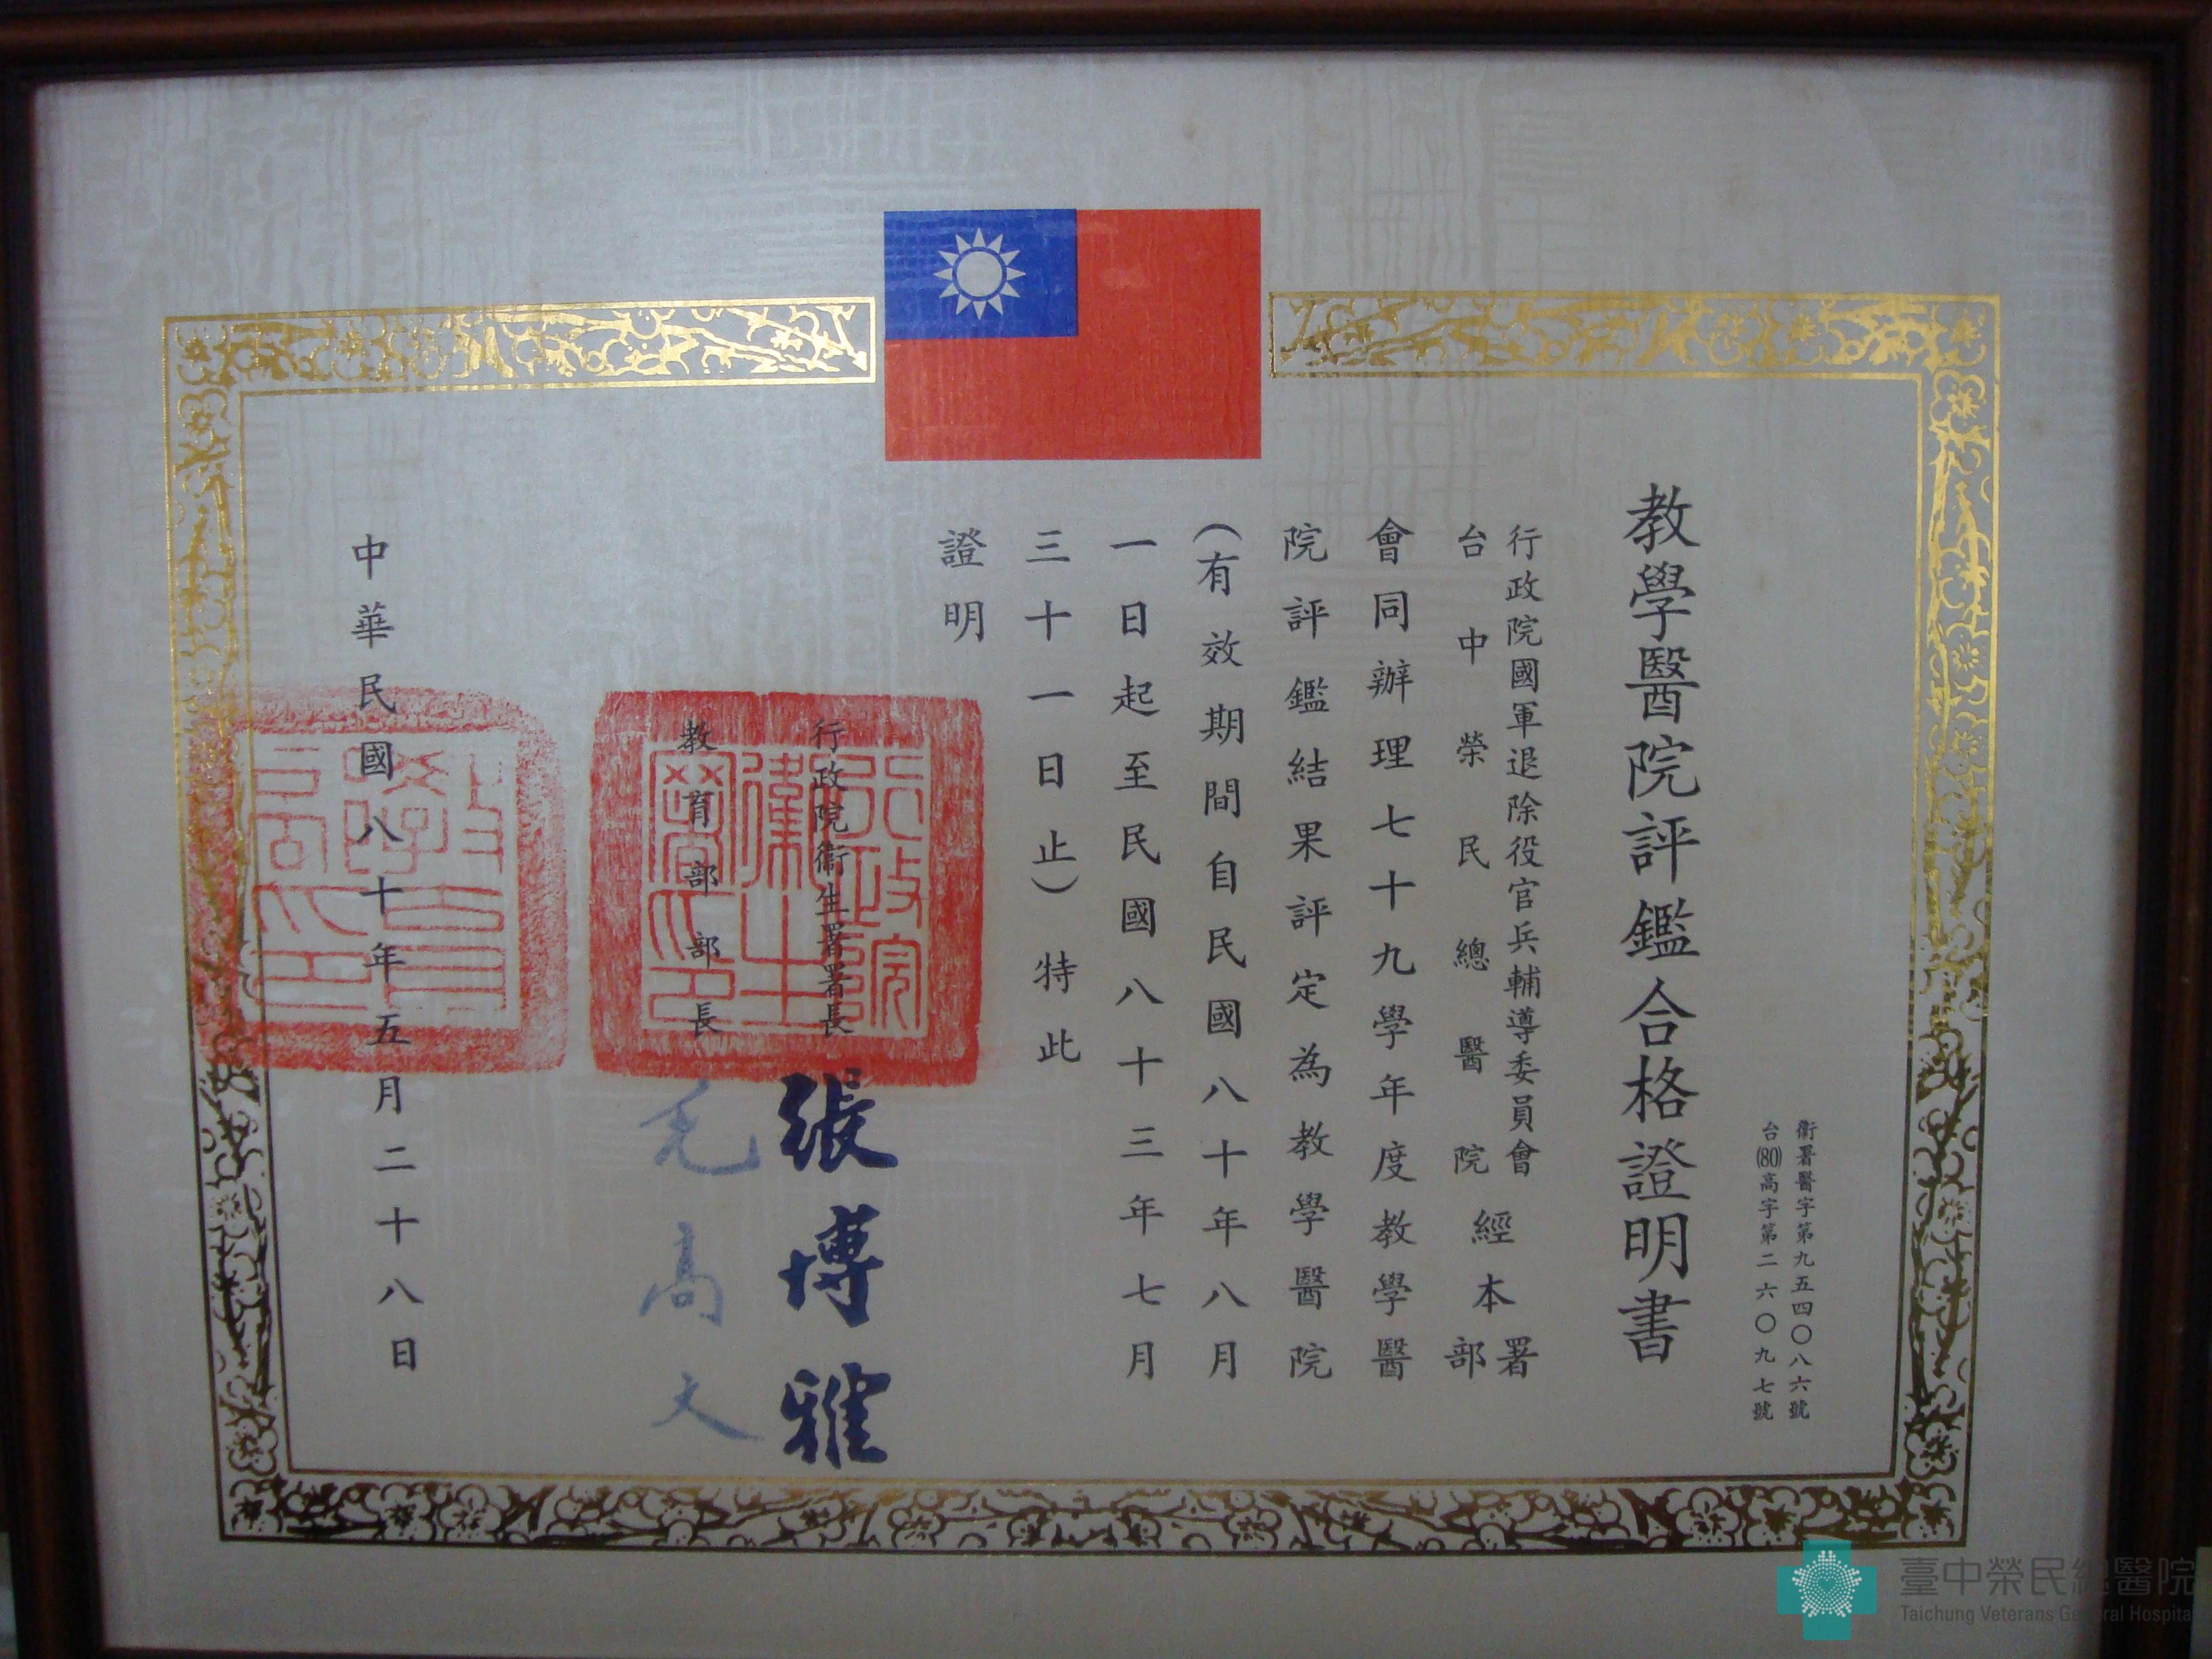 衛署醫字第九五四〇八六號
台(80)高字第二六〇九七號
教學醫院評鑑合格證明書
行政院國軍退除役官兵輔導委員會
台中榮民總醫院
經本署部
會同辦理七十九學年度教學醫
院評鑑結果評定為教學醫院
(有效期間自民國八十年八月
一日起至民國八十三年七月
三十一日止)特此
證明
行政院衛生署署長 張博雅
教育部部長 毛高文
行政院衛生署印
教育部印
中華民國八十年五月二十八日
臺中榮民總醫院
Taichung Veterans General Hospita